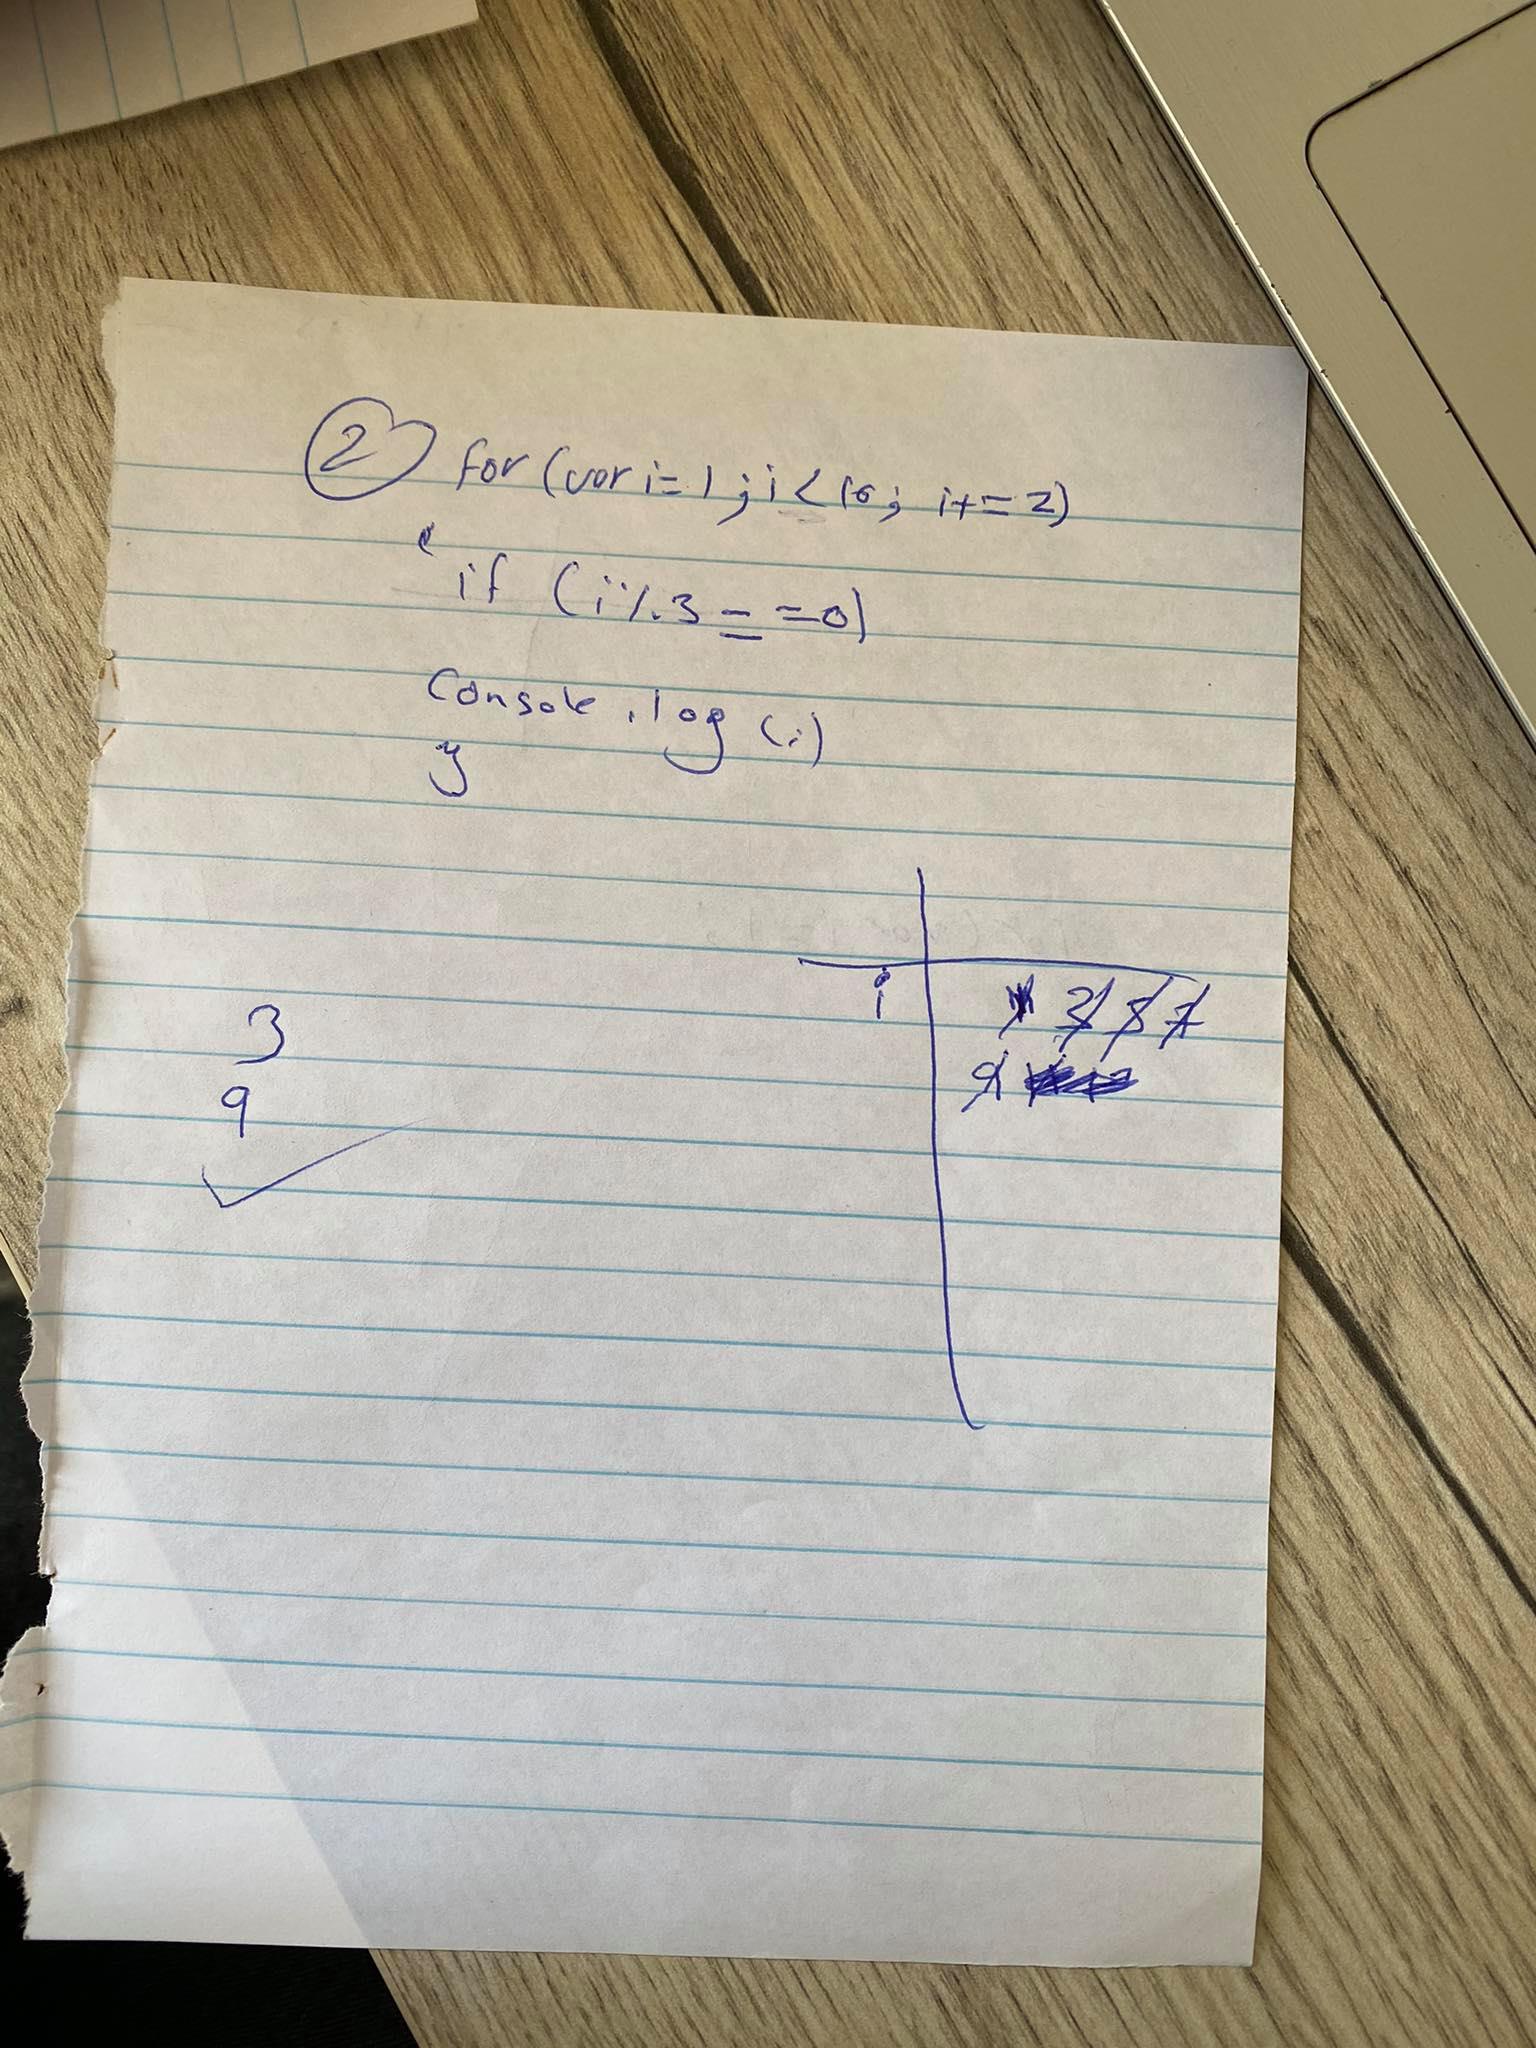 2 for (var i=1; i<10; i+=2)
{
if (i%3===0)
console.log(i)
}
i 1 3 5 7
3
9
9